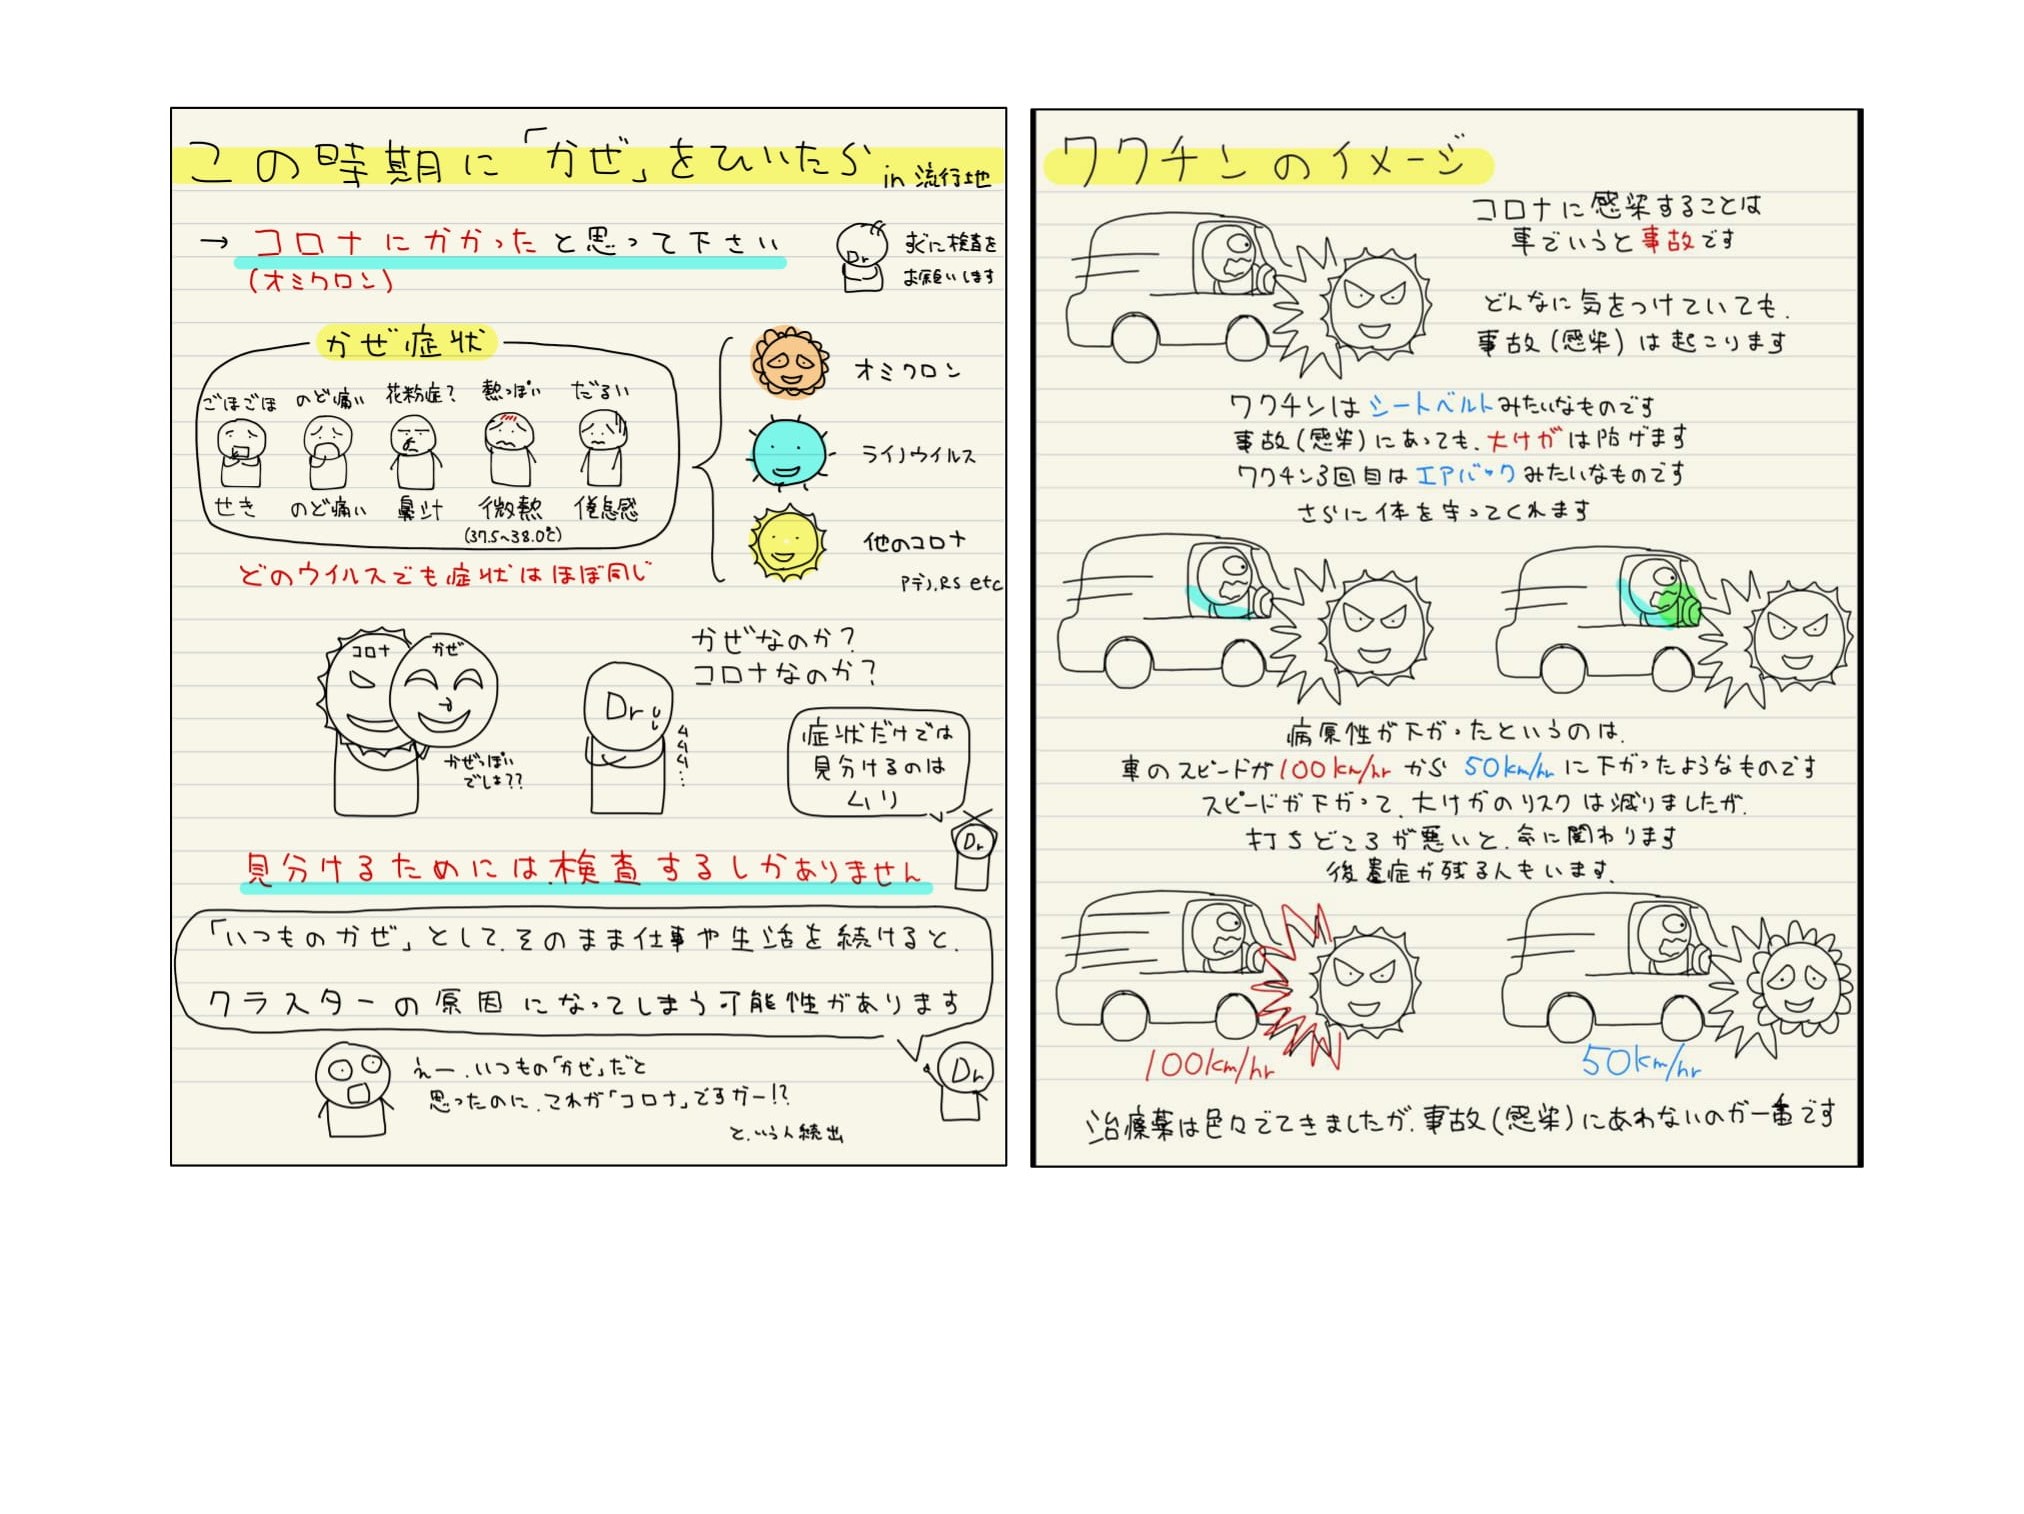 この時期に「かぜ」をひいたら in 流行地
→ コロナにかかったと思って下さい
(オミクロン)
Dr
すぐに検査を
お願いします
かぜ症状
ごほごほ のど痛い 花粉症? 熱っぽい だるい
せき のど痛い 鼻汁 微熱 倦怠感
(37.5~38.0℃)
どのウイルスでも症状はほぼ同じ
オミクロン
ライノウイルス
他のコロナ
アデノ,RS etc
コロナ かぜ
かぜっぽい
でしょ??
Dr
かぜなのか?
コロナなのか?
症状だけでは
見分けるのは
ムリ
Dr
見分けるためには、検査するしかありません
「いつものかぜ」として、そのまま仕事や生活を続けると、
クラスターの原因になってしまう可能性があります
Dr
えー、いつもの「かぜ」だと
思ったのに、これが「コロナ」ですかー!?
と、いう人続出
ワクチンのイメージ
コロナに感染することは
車でいうと事故です
どんなに気をつけていても、
事故(感染)は起こります
ワクチンはシートベルトみたいなものです
事故(感染)にあっても、大けがは防げます
ワクチン3回目はエアバックみたいなものです
さらに体を守ってくれます
病原性が下がったというのは、
車のスピードが100km/hrから50km/hrに下がったようなものです
スピードが下がって、大けがのリスクは減りましたが、
打ちどころが悪いと、命に関わります
後遺症が残る人もいます、
100km/hr
50km/hr
治療薬は色々でてきましたが、事故(感染)にあわないのが一番です